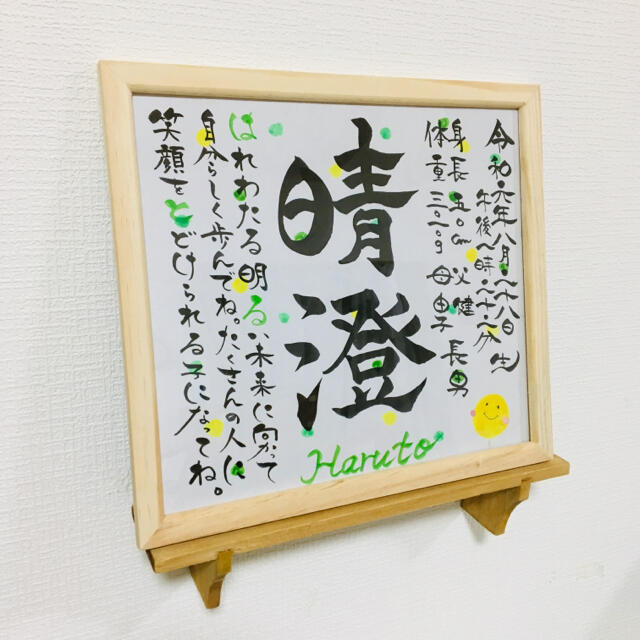 令和六年八月二十八日生
午後一時二十六分
身長 五〇cm 父 健 長男
体重 三〇二〇g 母 由子
晴澄
Haruto
はれわたる明るい未来に向って
自分らしく歩んでね。たくさんの人に
笑顔をとどけられる子になってね。